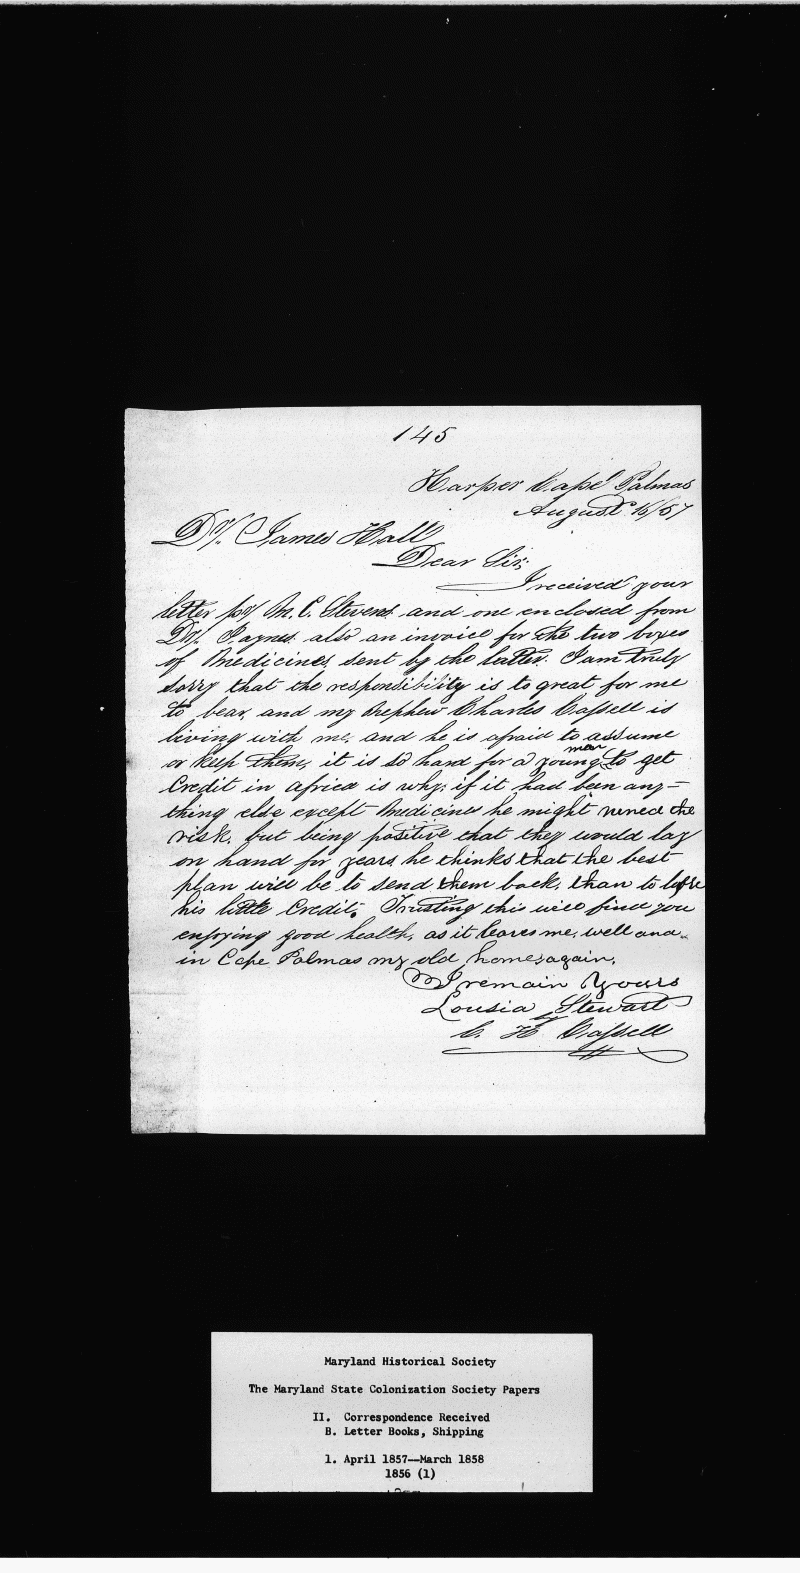 145
Harper Cape Palmas
August 16/57
Dr. James Hall
Dear Sir;
I received your
letter pr M. C. Stevens and one enclosed from
Dr. Jaynes also an invoice for the two boxes
of Medicines sent by the latter. I am truly
sorry that the responsibility is to great for me
to bear, and my Nephew Charles Cassell is
living with me, and he is afraid to assume
or keep them, it is so hard for a young man to get
Credit in africa is why; if it had been any-
thing else except Medicines he might the
risk, but being positive that they would lay
on hand for years he thinks that the best
plan will be to send them back, than to lose
his little Credit. Trusting this will find you
enjoying good health, as it leaves me, well and
in Cape Palmas my old home again,
I remain Yours
Lousia Stewart
C. H Cassell
Maryland Historical Society
The Maryland State Colonization Society Papers
II. Correspondence Received
B. Letter Books, Shipping
1. April 1857--March 1858
1856 (1)